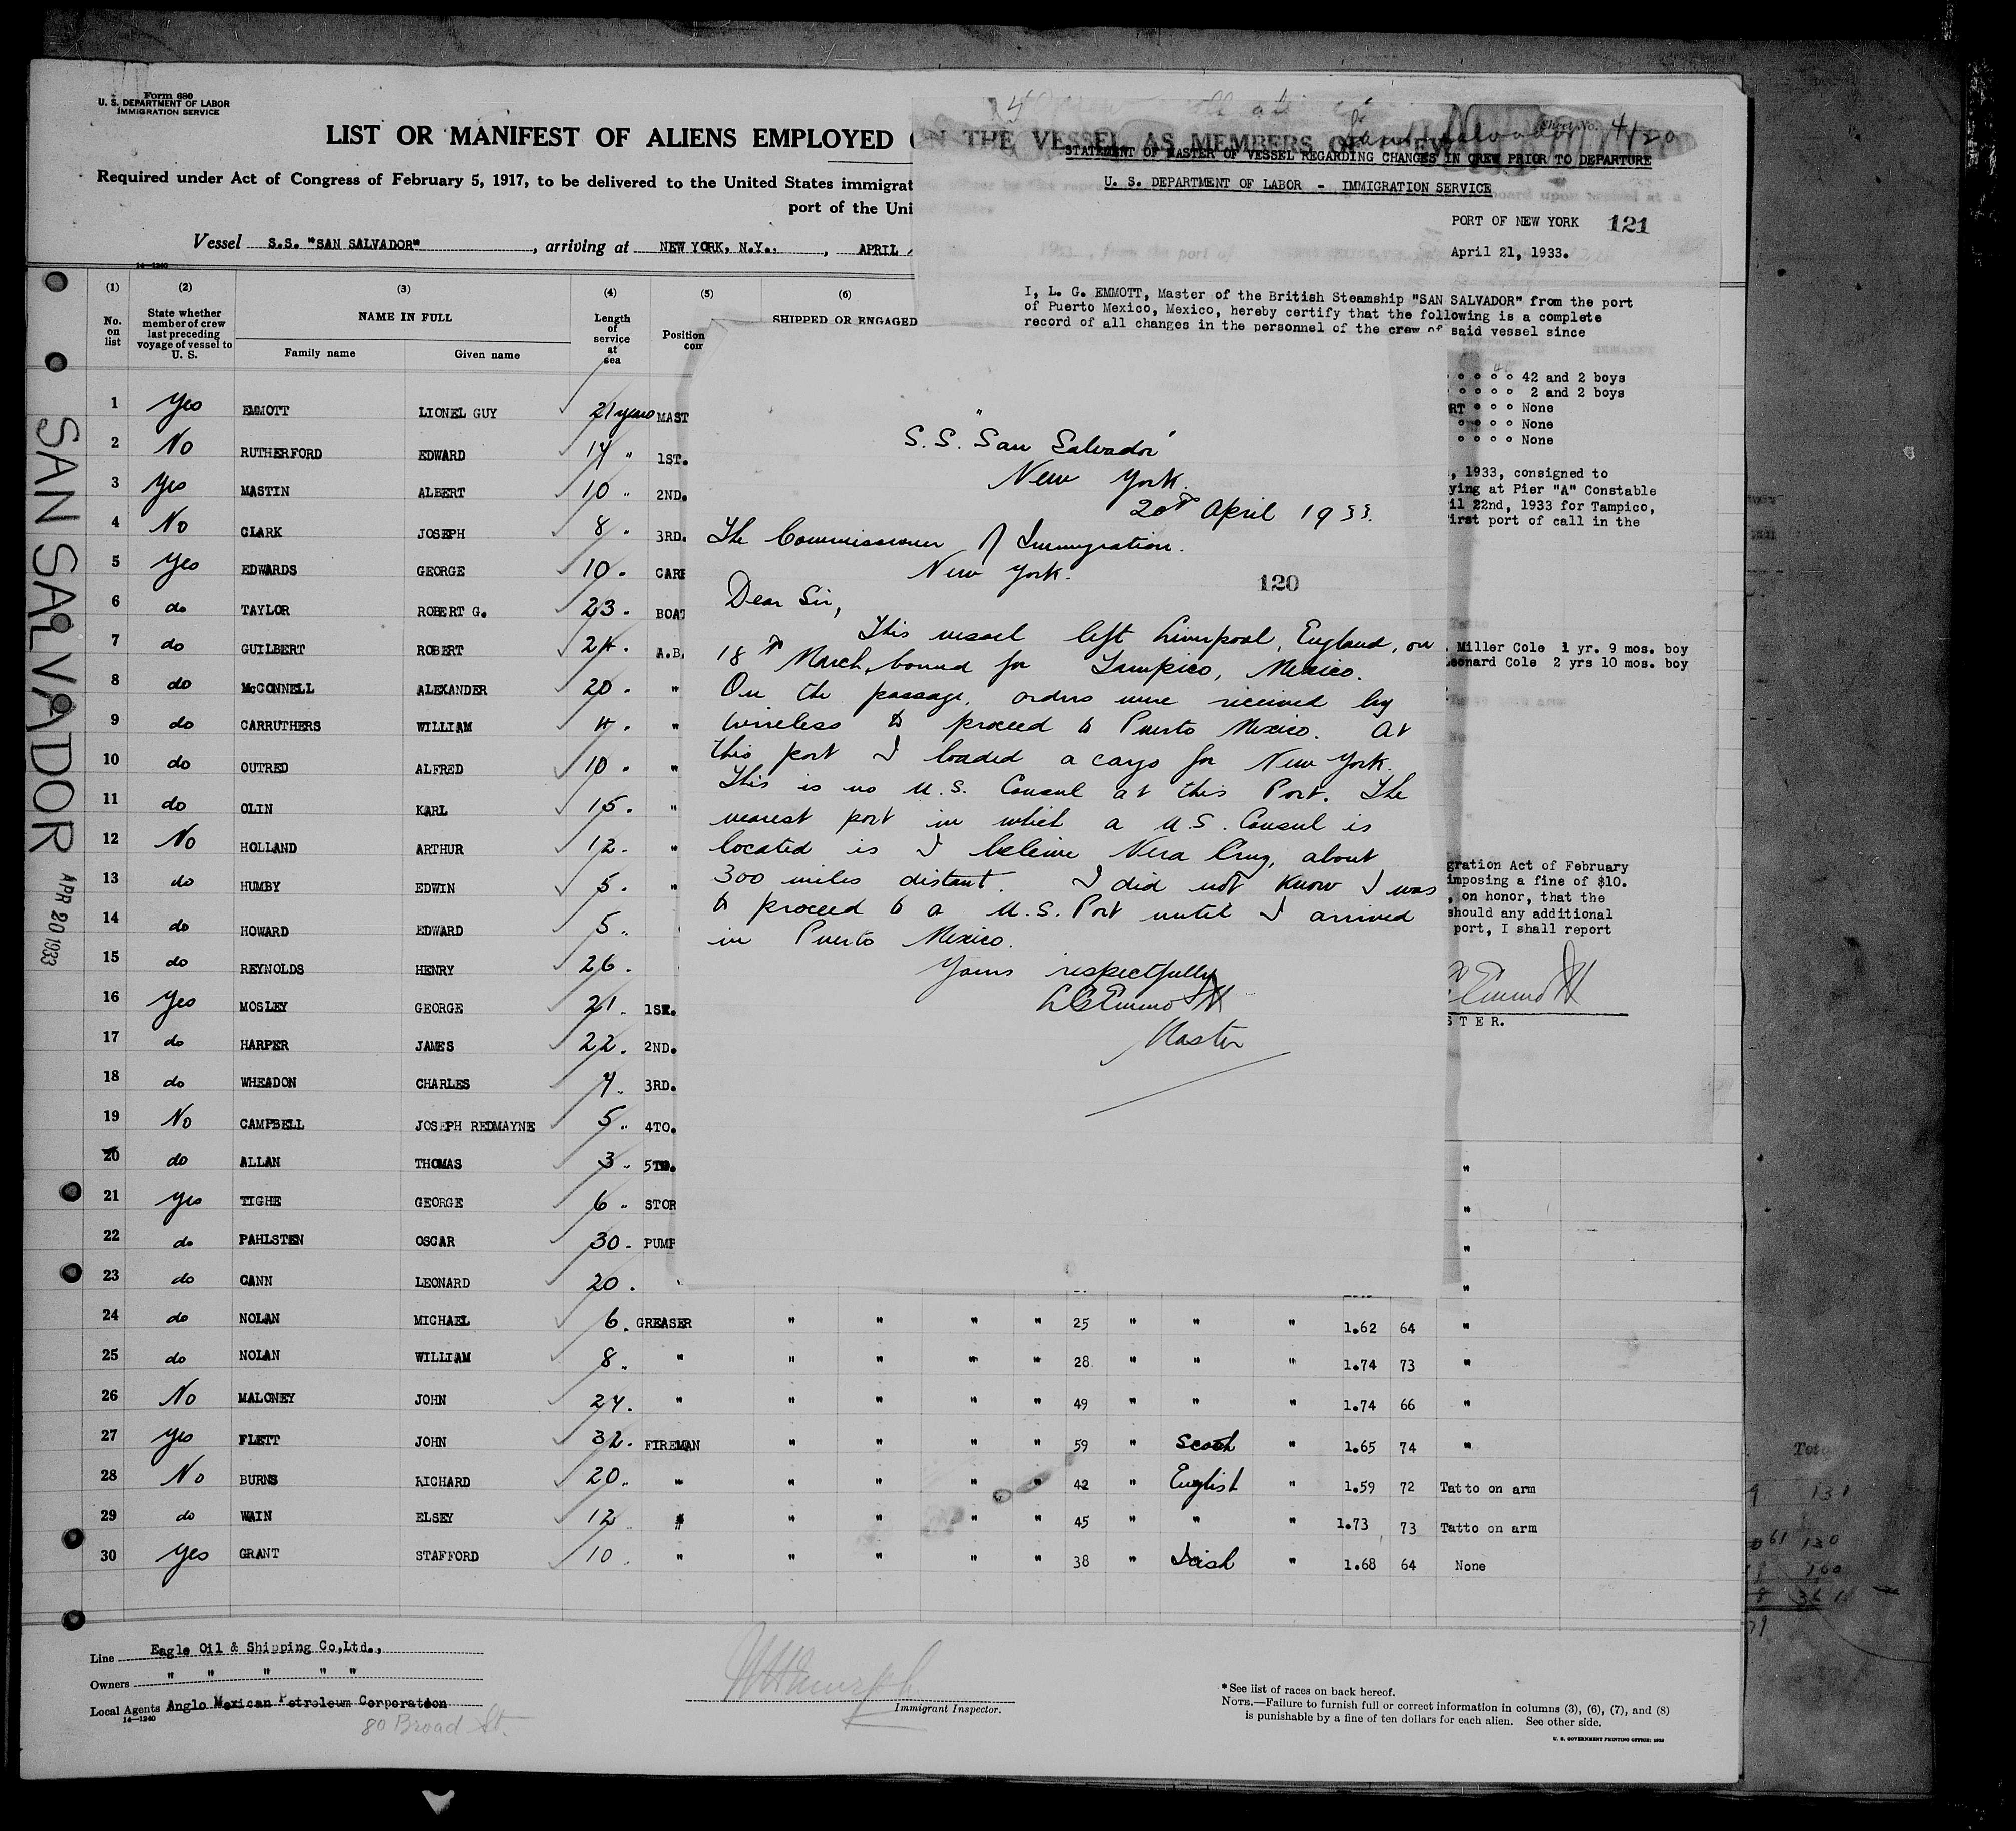 Form 680
U. S. DEPARTMENT OF LABOR
IMMIGRATION SERVICE
LIST OR MANIFEST OF ALIENS EMPLOYED ON THE VESSEL AS MEMBERS OF CREW
Required under Act of Congress of February 5, 1917, to be delivered to the United States immigrat
port of the Uni
Vessel S.S. "SAN SALVADOR", arriving at NEW YORK, N.Y., APRIL
14-1240
Sheet No.
4/20
STATEMENT OF MASTER OF VESSEL REGARDING CHANGES IN CREW PRIOR TO DEPARTURE
U. S. DEPARTMENT OF LABOR - IMMIGRATION SERVICE
PORT OF NEW YORK 121
April 21, 1933.
I, L. G. EMMOTT, Master of the British Steamship "SAN SALVADOR" from the port
of Puerto Mexico, Mexico, hereby certify that the following is a complete
record of all changes in the personnel of the crew of said vessel since
42 and 2 boys
2 and 2 boys
RT None
None
None
, 1933, consigned to
ying at Pier "A" Constable
il 22nd, 1933 for Tampico,
irst port of call in the
Miller Cole 1 yr. 9 mos. boy
eonard Cole 2 yrs 10 mos. boy
gration Act of February
imposing a fine of $10.
, on honor, that the
should any additional
port, I shall report
Emmott
S T E R.
S.S. "San Salvador"
New York.
20th April 1933.
The Commissioner of Immigration.
New York.
120
Dear Sir,
This vessel left Liverpool, England, on
18th March, bound for Tampico, Mexico.
On the passage, orders were received by
wireless to proceed to Puerto Mexico. At
this port I loaded a cargo for New York.
This is no U.S. Consul at this Port. The
nearest port in which a U.S. Consul is
located is I beleive Vera Cruz, about
300 miles distant. I did not know I was
to proceed to a U.S. Port until I arrived
in Puerto Mexico.
Yours respectfully
LGEmmott
Master
(1) (2) (3) (4) (5) (6)
No. on list
State whether member of crew last preceding voyage of vessel to U. S.
NAME IN FULL
Family name Given name
Length of service at sea
Position
SHIPPED OR ENGAGED
1 Yes EMMOTT LIONEL GUY 21 years MAST
2 No RUTHERFORD EDWARD 14 " 1ST.
3 Yes MASTIN ALBERT 10 " 2ND.
4 No CLARK JOSEPH 8 " 3RD.
5 Yes EDWARDS GEORGE 10 " CARP
6 do TAYLOR ROBERT G. 23 " BOAT
7 do GUILBERT ROBERT 24 " A.B.
8 do McCONNELL ALEXANDER 20 " "
9 do CARRUTHERS WILLIAM 4 " "
10 do OUTRED ALFRED 10 " "
11 do OLIN KARL 15 " "
12 No HOLLAND ARTHUR 12 " "
13 do HUMBY EDWIN 5 " "
14 do HOWARD EDWARD 5 "
15 do REYNOLDS HENRY 26 "
16 Yes MOSLEY GEORGE 21 " 1ST.
17 do HARPER JAMES 22 " 2ND.
18 do WHEADON CHARLES 7 " 3RD.
19 No CAMPBELL JOSEPH REDMAYNE 5 " 4TO.
20 do ALLAN THOMAS 3 " 5TO. "
21 Yes TIGHE GEORGE 6 " STOR "
22 do PAHLSTEN OSCAR 30 " PUMP "
23 do CANN LEONARD 20 " "
24 do NOLAN MICHAEL 6 " GREASER " " " " 25 " " " 1.62 64 "
25 do NOLAN WILLIAM 8 " " " " " " 28 " " " 1.74 73 "
26 No MALONEY JOHN 24 " " " " " " 49 " " " 1.74 66 "
27 Yes FLETT JOHN 32 " FIREMAN " " " " 59 " Scotch " 1.65 74 "
28 No BURNS RICHARD 20 " " " " " " 42 " English " 1.59 72 Tatto on arm
29 do WAIN ELSEY 12 " " " " " " 45 " " " 1.73 73 Tatto on arm
30 Yes GRANT STAFFORD 10 " " " " " " 38 " Irish " 1.68 64 None
SAN SALVADOR
APR 20 1933
Line Eagle Oil & Shipping Co,Ltd.,
Owners " " " " "
Local Agents Anglo Mexican Petroleum Corporation
14-1240
80 Broad St.
Immigrant Inspector.
* See list of races on back hereof.
NOTE.—Failure to furnish full or correct information in columns (3), (6), (7), and (8)
is punishable by a fine of ten dollars for each alien. See other side.
U. S. GOVERNMENT PRINTING OFFICE: